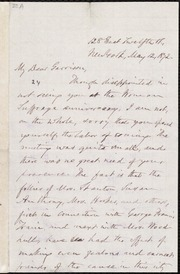 128 East Twelfth St.
New York, May 12, 1872
My Dear Garrison,
Though disappointed in
not seeing you at the Woman
Suffrage Anniversary, I am not,
on the whole, sorry that you spared
yourself the labor of coming. The
meeting was quite small, and
there was no great need of your
presence. The fact is that the
follies of Mrs. Stanton, Susan
Anthony, Mrs. Hooker, and others,
first in connection with George Francis
Train and next with Mrs. Wood-
hull, have had the effect of
making even zealous and earnest
friends of the cause in this city